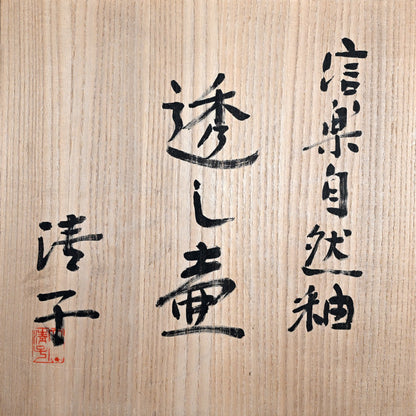 信楽自然釉
透し壷
清子
清子